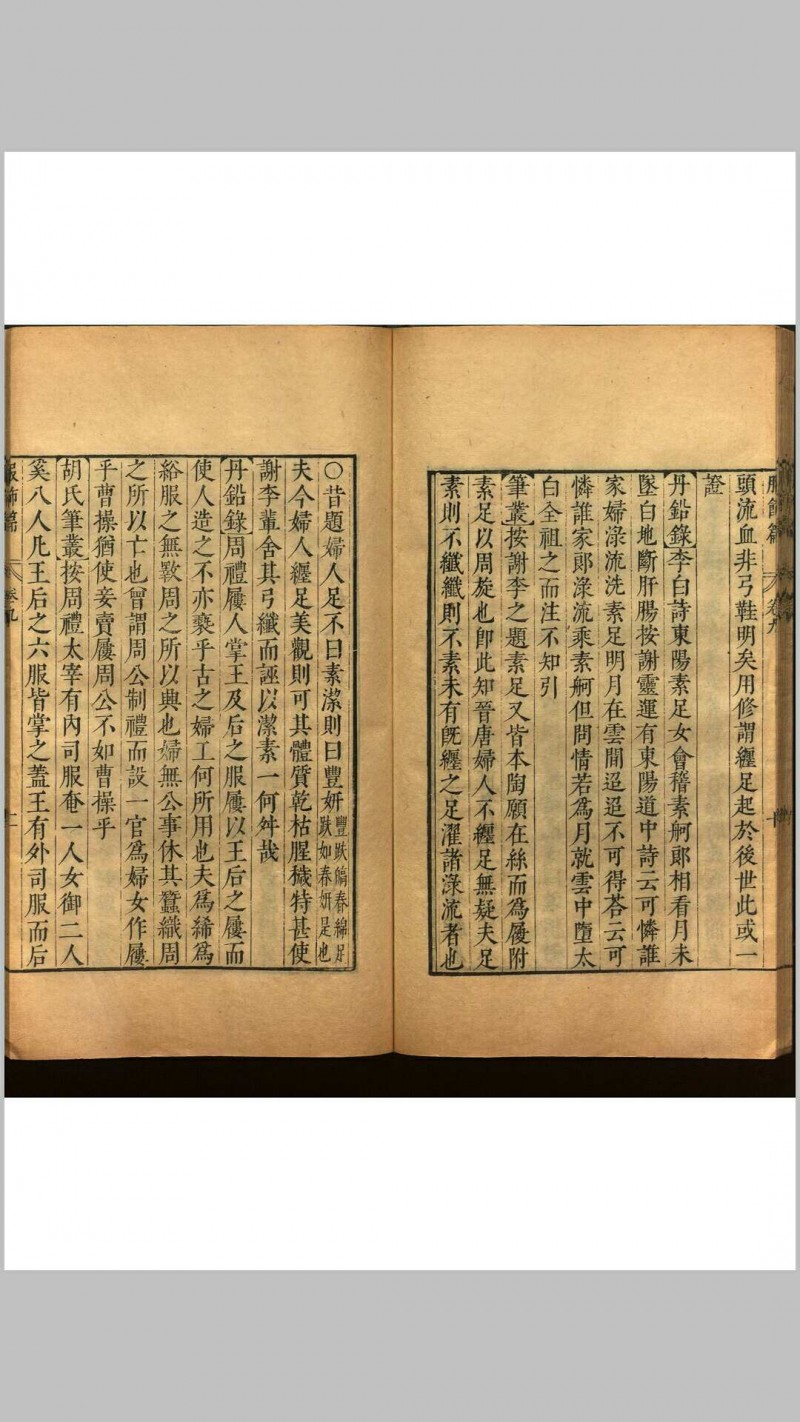 服飾篇 卷九 十
頭流血非弓鞋明矣用修謂纏足起於後世此或一
證
丹鉛錄李白詩東陽素足女會稽素舸郎相看月未
墜白地斷肝腸按謝靈運有東陽道中詩云可憐誰
家婦淥流洗素足明月在雲間迢迢不可得荅云可
憐誰家郎淥流乘素舸但問情若爲月就雲中墮太
白全祖之而注不知引
筆叢按謝李之題素足又皆本陶願在絲而爲履附
素足以周旋也卽此知晉唐婦人不纏足無疑夫足
素則不纖纖則不素未有旣纏之足濯諸淥流者也
○昔題婦人足不曰素潔則曰豐妍豐趺皜春綿足趺如春妍足也
夫今婦人纏足美觀則可其體質乾枯腥穢特甚使
謝李輩舍其弓纖而誣以潔素一何舛哉
丹鉛錄周禮屨人掌王及后之服屨以王后之屨而
使人造之不亦褻乎古之婦工何所用也夫爲絺爲
綌服之無斁周之所以興也婦無公事休其蠶織周
之所以亡也曾謂周公制禮而設一官爲婦女作屨
乎曹操猶使妾賣屨周公不如曹操乎
胡氏筆叢按周禮太宰有內司服奄一人女御二人
奚八人凡王后之六服皆掌之蓋王有外司服而后
服飾篇 卷九